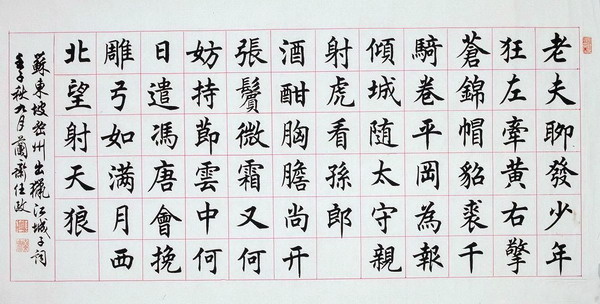 老夫聊發少年
狂左牽黃右擎
蒼錦帽貂裘千
騎卷平岡為報
傾城随太守親
射虎看孫郎
酒酣胸膽尚開
張鬢微霜又何
妨持節雲中何
日遣馮唐會挽
雕弓如满月西
北望射天狼
蘇東坡密州出獵江城子詞
壬子秋九月蘭齋任政